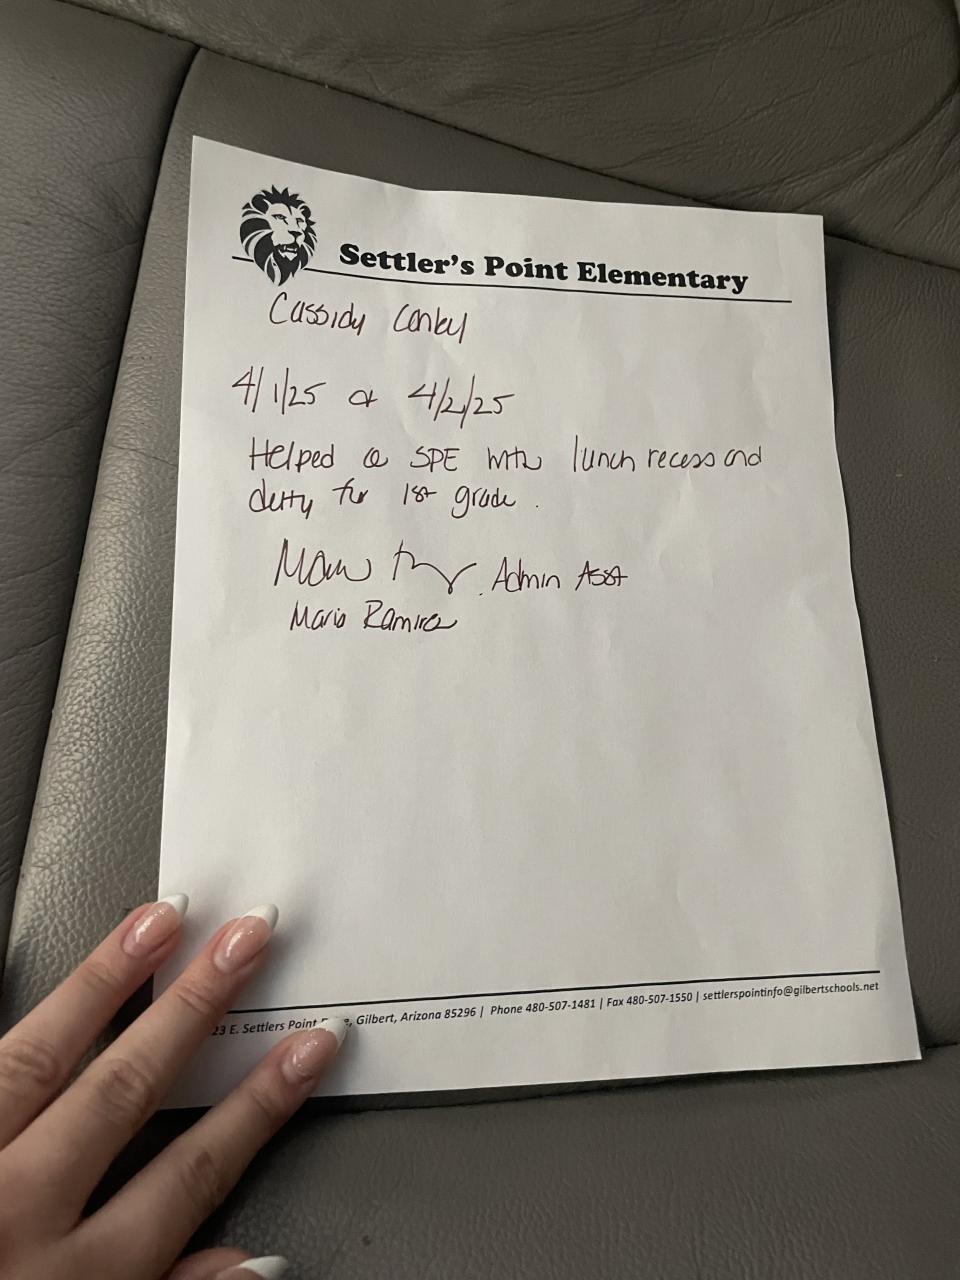 Settler's Point Elementary
Cassidy Conley
4/1/25 & 4/2/25
Helped @ SPE with lunch recess and
duty for 1st grade.
Admin Asst
Maria Ramirez
23 E. Settlers Point, Gilbert, Arizona 85296 | Phone 480-507-1481 | Fax 480-507-1550 | settlerspointinfo@gilbertschools.net